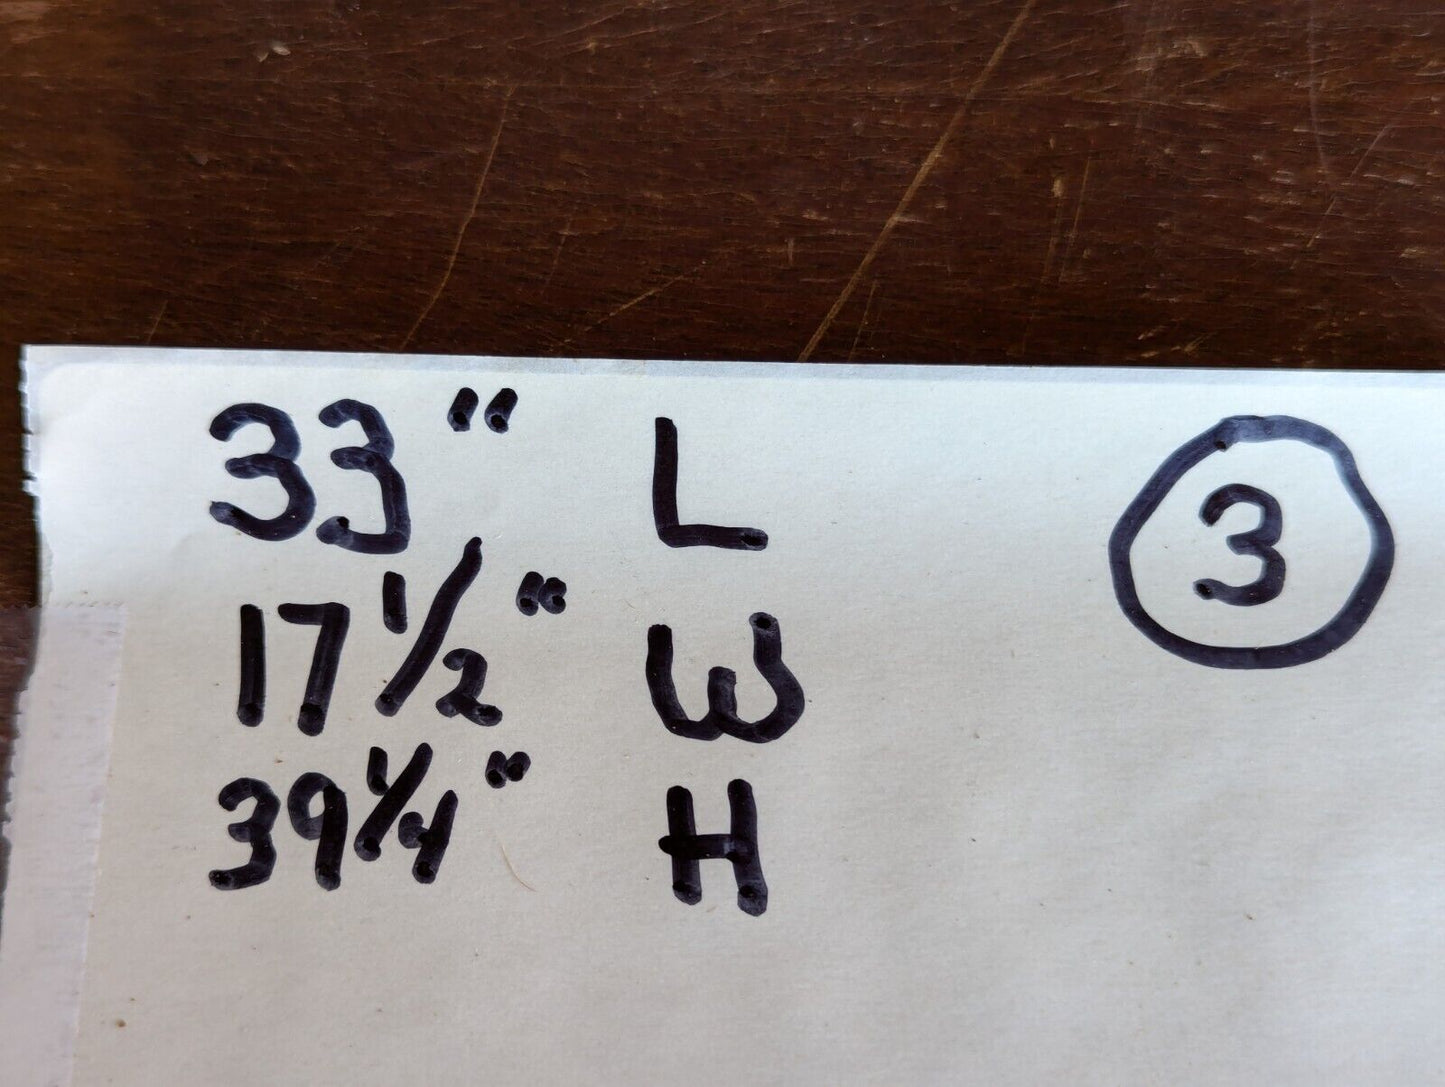 33" L
③
17 1/2" W
39 1/4" H